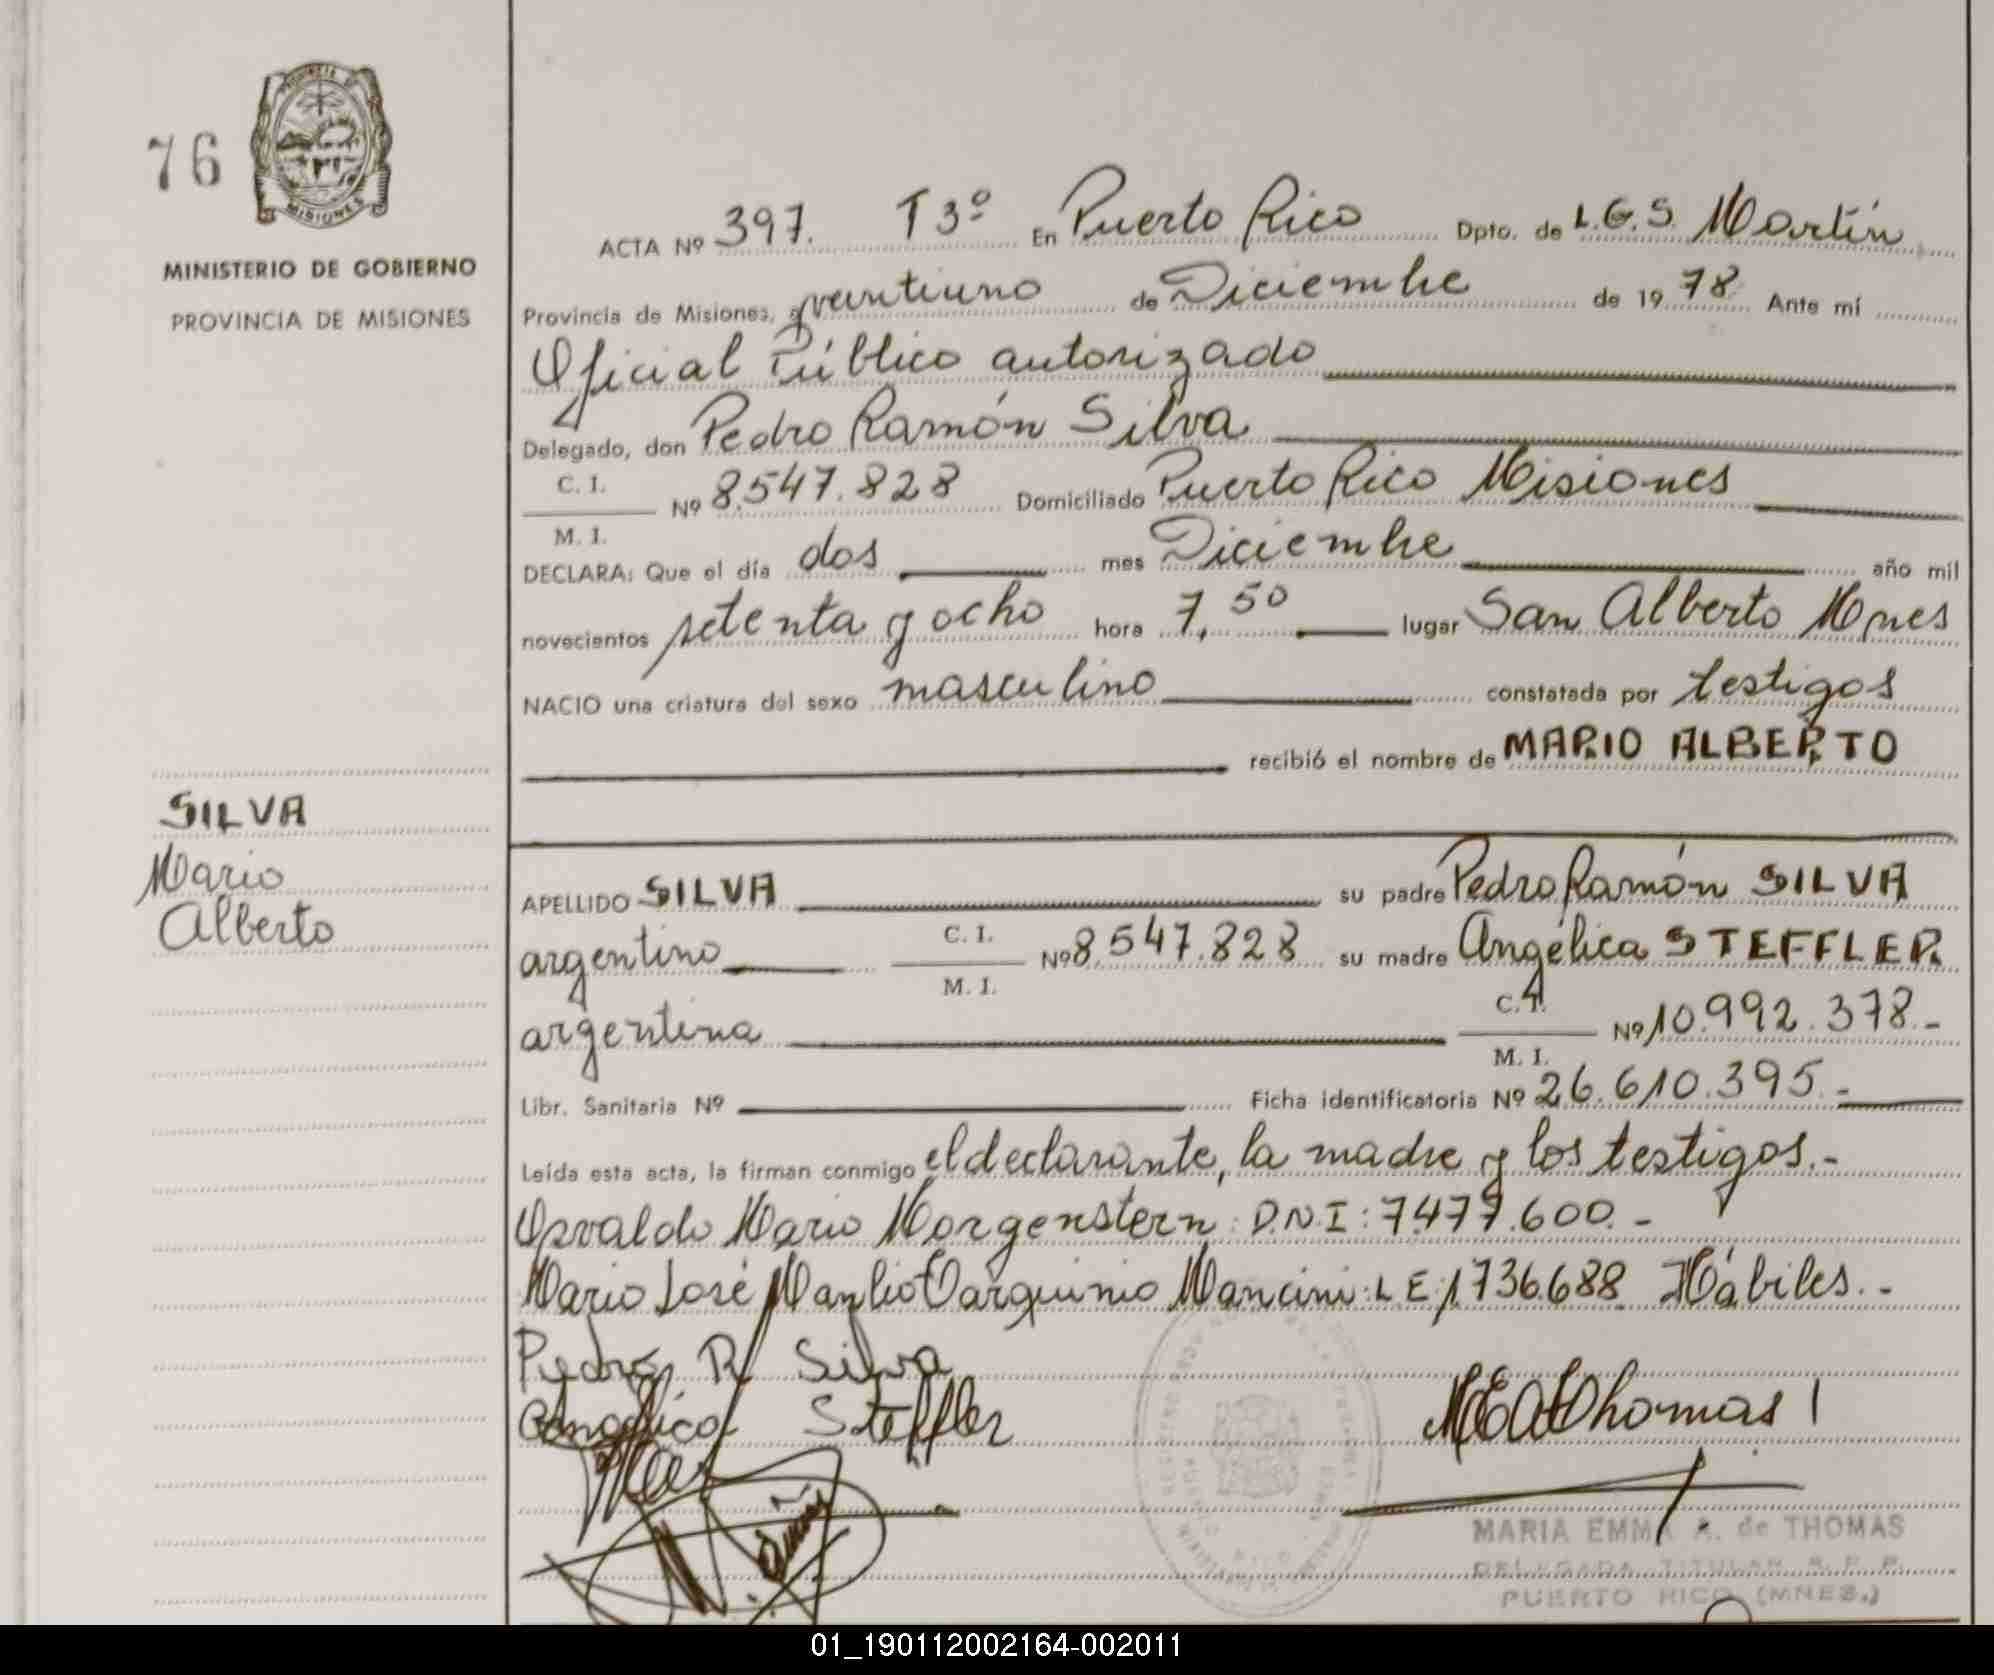 76
PROVINCIA DE
MISIONES
MINISTERIO DE GOBIERNO
PROVINCIA DE MISIONES
ACTA Nº 397. T 3º En Puerto Rico Dpto. de L.G.S. Martín
Provincia de Misiones, a veintiuno de Diciembre de 1978 Ante mí
Oficial Público autorizado
Delegado, don Pedro Ramón Silva
C. I.
Nº 8.547.828 Domiciliado Puerto Rico Misiones
M. I.
DECLARA: Que el día dos mes Diciembre año mil
novecientos setenta y ocho hora 7,50 lugar San Alberto Mnes
NACIO una criatura del sexo masculino constatada por testigos
recibió el nombre de MARIO ALBERTO
SILVA
Mario
Alberto
APELLIDO SILVA su padre Pedro Ramón SILVA
argentino C. I. Nº 8.547.828 su madre Angélica STEFFLER
M. I.
argentina C. I. Nº 10.992.378.-
M. I.
Libr. Sanitaria Nº Ficha identificatoria Nº 26.610.395.-
Leída esta acta, la firman conmigo el declarante, la madre y los testigos.-
Osvaldo Mario Morgenstern: D.N.I: 7.477.600.-
Mario José Manlio Tarquinio Mancini: L E: 1736688 Hábiles.-
Pedro R Silva
Angelica Steffler
MEAThomas
MARIA EMMA A. de THOMAS
DELEGADA TITULAR R. P. P.
PUERTO RICO (MNES.)
01_190112002164-002011